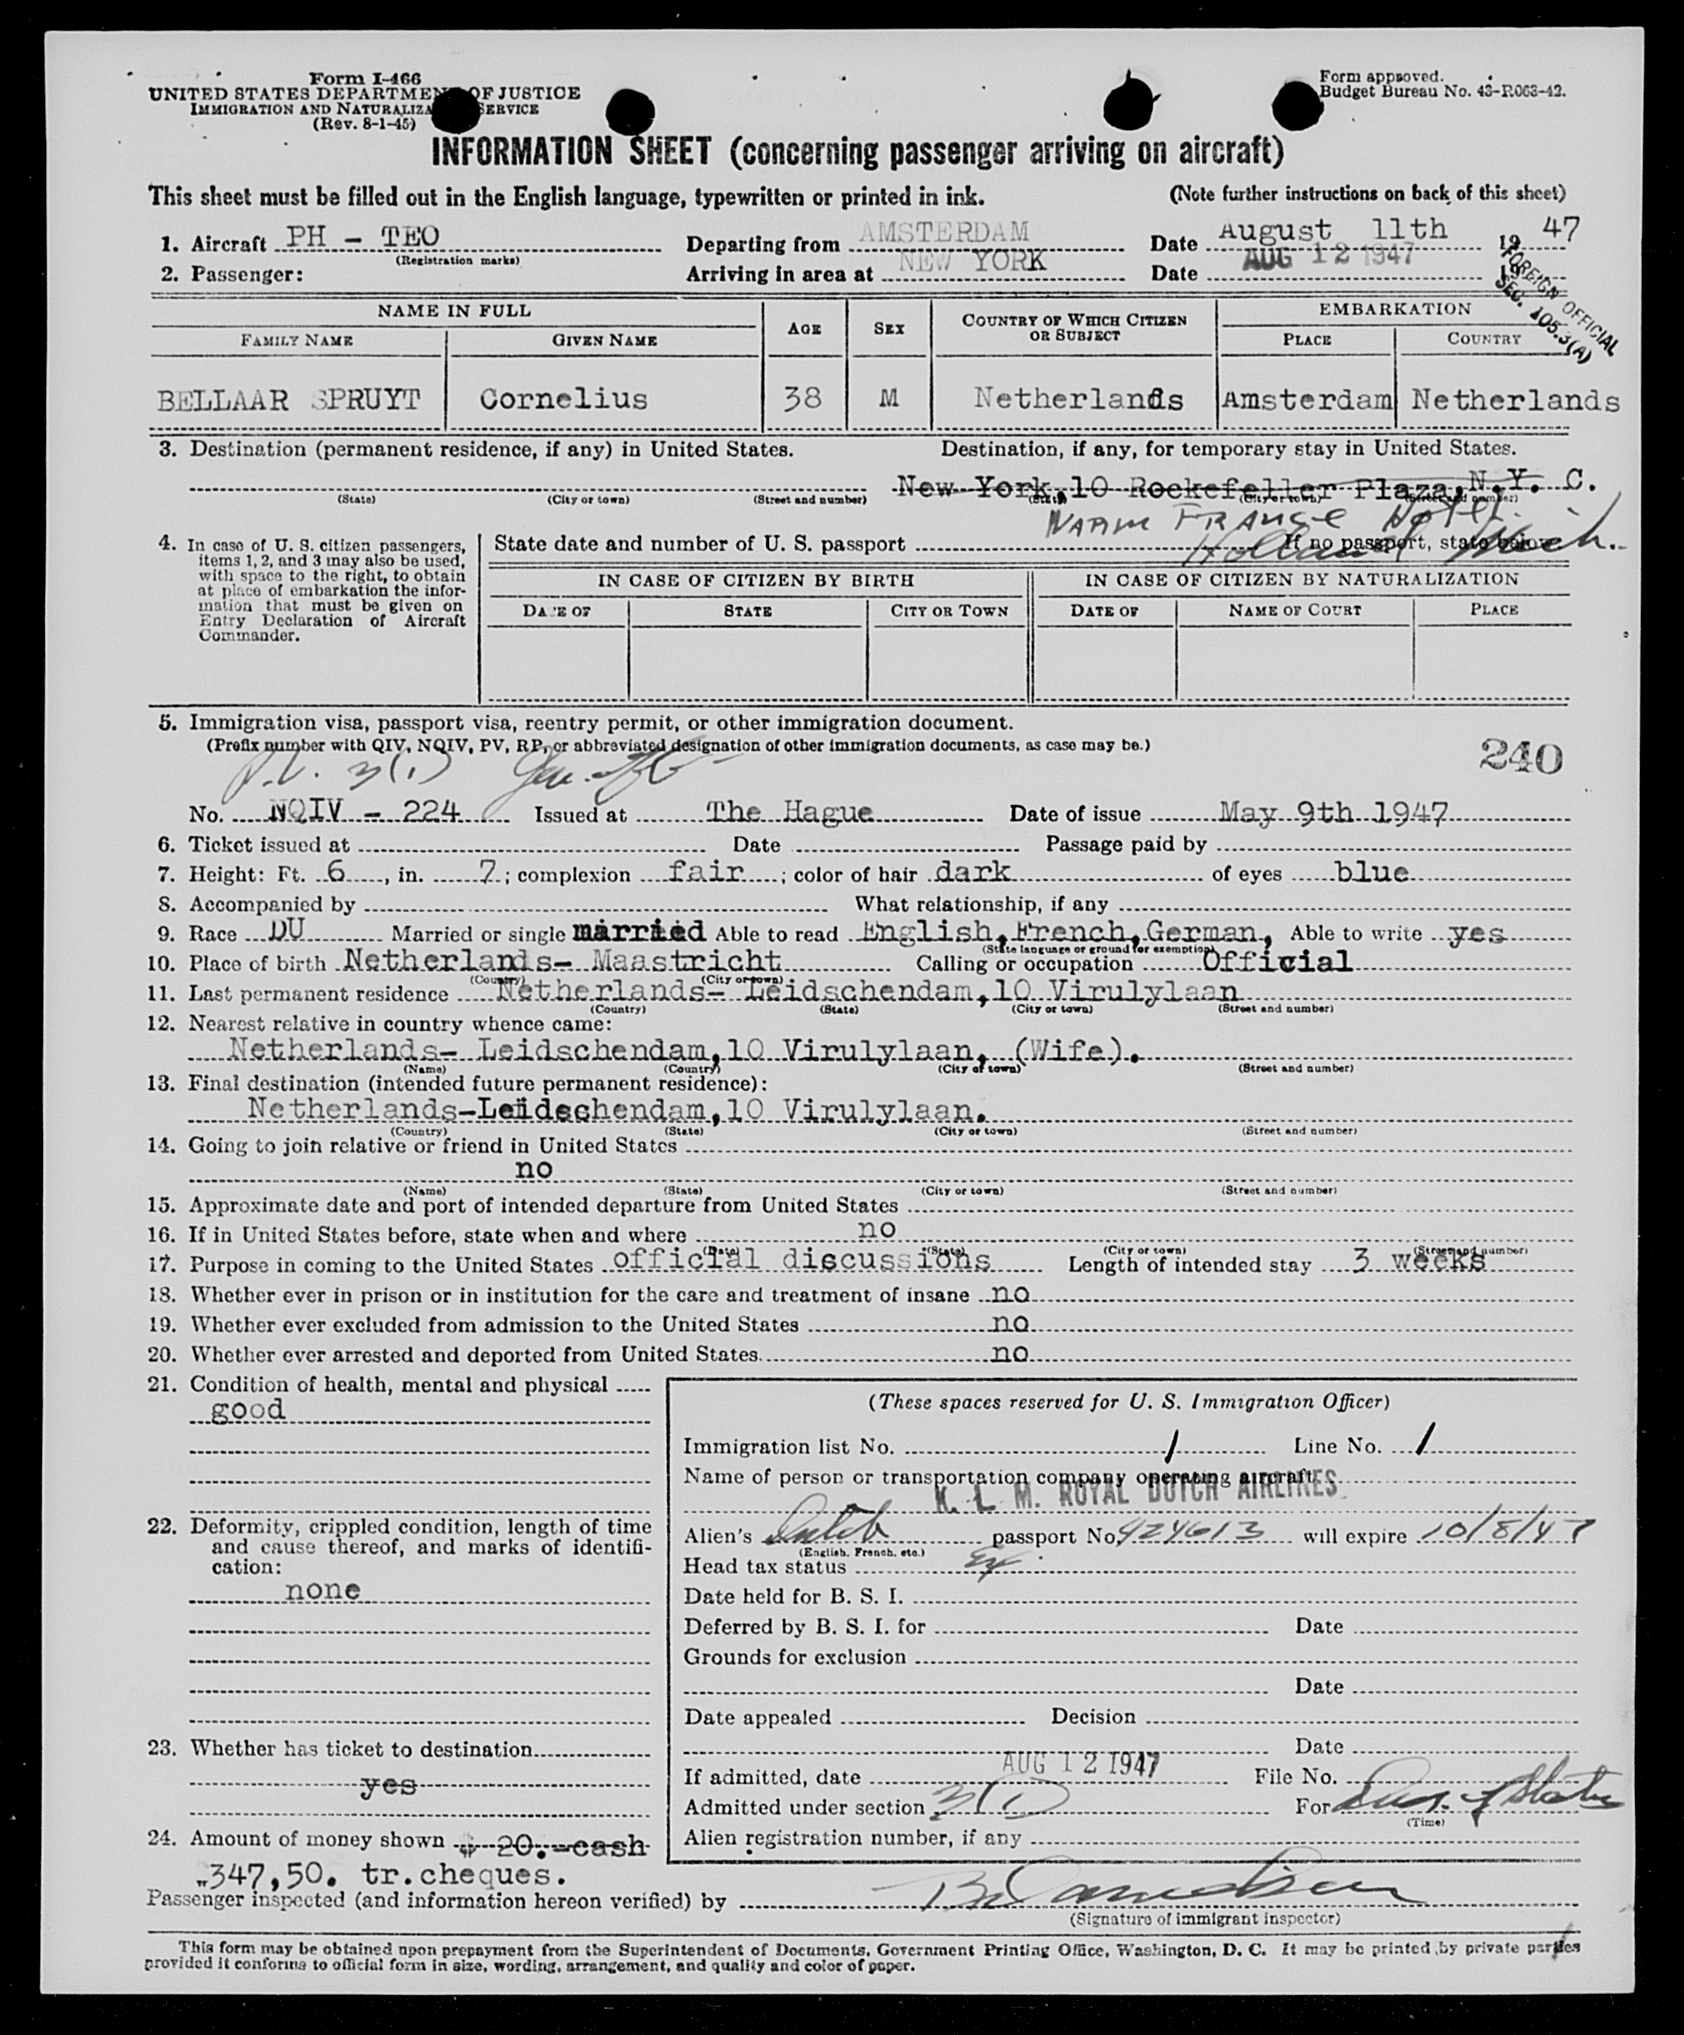 Form I-466
UNITED STATES DEPARTMENT OF JUSTICE
IMMIGRATION AND NATURALIZA SERVICE
(Rev. 8-1-45)
Form approved.
Budget Bureau No. 43-R063-42.
INFORMATION SHEET (concerning passenger arriving on aircraft)
This sheet must be filled out in the English language, typewritten or printed in ink. (Note further instructions on back of this sheet)
1. Aircraft PH - TEO Departing from AMSTERDAM Date August 11th 1947
(Registration marks)
2. Passenger: Arriving in area at NEW YORK Date AUG 12 1947 19
FOREIGN OFFICIAL
SEC. 105.3(A)
NAME IN FULL AGE SEX COUNTRY OF WHICH CITIZEN OR SUBJECT EMBARKATION
FAMILY NAME GIVEN NAME PLACE COUNTRY
BELLAAR SPRUYT Cornelius 38 M Netherlands Amsterdam Netherlands
3. Destination (permanent residence, if any) in United States. Destination, if any, for temporary stay in United States.
New York, 10 Rockefeller Plaza, N.Y. C.
(State) (City or town) (Street and number) (State) (City or town) (Street and number)
Hotel
Holland
4. In case of U. S. citizen passengers, items 1, 2, and 3 may also be used, with space to the right, to obtain at place of embarkation the information that must be given on Entry Declaration of Aircraft Commander.
State date and number of U. S. passport If no passport, state below
IN CASE OF CITIZEN BY BIRTH IN CASE OF CITIZEN BY NATURALIZATION
DATE OF STATE CITY OR TOWN DATE OF NAME OF COURT PLACE
5. Immigration visa, passport visa, reentry permit, or other immigration document.
(Prefix number with QIV, NQIV, PV, RP, or abbreviated designation of other immigration documents, as case may be.)
240
P.V. 3(1)
No. NQIV - 224 Issued at The Hague Date of issue May 9th 1947
6. Ticket issued at Date Passage paid by
7. Height: Ft. 6, in. 7; complexion fair; color of hair dark of eyes blue
8. Accompanied by What relationship, if any
9. Race DU Married or single married Able to read English, French, German, Able to write yes
(State language or ground for exemption)
10. Place of birth Netherlands- Maastricht Calling or occupation Official
(Country) (City or town)
11. Last permanent residence Netherlands- Leidschendam, 10 Virulylaan
(Country) (State) (City or town) (Street and number)
12. Nearest relative in country whence came:
Netherlands- Leidschendam, 10 Virulylaan, (Wife).
(Name) (Country) (City or town) (Street and number)
13. Final destination (intended future permanent residence):
Netherlands-Leidschendam, 10 Virulylaan.
(Country) (State) (City or town) (Street and number)
14. Going to join relative or friend in United States
no
(Name) (State) (City or town) (Street and number)
15. Approximate date and port of intended departure from United States
16. If in United States before, state when and where no
(Date) (State) (City or town) (Street and number)
17. Purpose in coming to the United States official discussions Length of intended stay 3 weeks
18. Whether ever in prison or in institution for the care and treatment of insane no
19. Whether ever excluded from admission to the United States no
20. Whether ever arrested and deported from United States. no
21. Condition of health, mental and physical
good
22. Deformity, crippled condition, length of time and cause thereof, and marks of identification:
none
23. Whether has ticket to destination
yes
24. Amount of money shown $ 20.-cash
"347,50. tr.cheques.
(These spaces reserved for U. S. Immigration Officer)
Immigration list No. 1 Line No. 1
Name of person or transportation company operating aircraft
K. L. M. ROYAL DUTCH AIRLINES
Alien's Dutch passport No. 424613 will expire 10/8/47
(English, French, etc.)
Head tax status Ex.
Date held for B. S. I.
Deferred by B. S. I. for Date
Grounds for exclusion
Date
Date appealed Decision
Date
If admitted, date AUG 12 1947 File No.
Admitted under section 3(1) For Dur. of Status
(Time)
Alien registration number, if any
Passenger inspected (and information hereon verified) by
(Signature of immigrant inspector)
This form may be obtained upon prepayment from the Superintendent of Documents, Government Printing Office, Washington, D. C. It may be printed by private parties
provided it conforms to official form in size, wording, arrangement, and quality and color of paper.